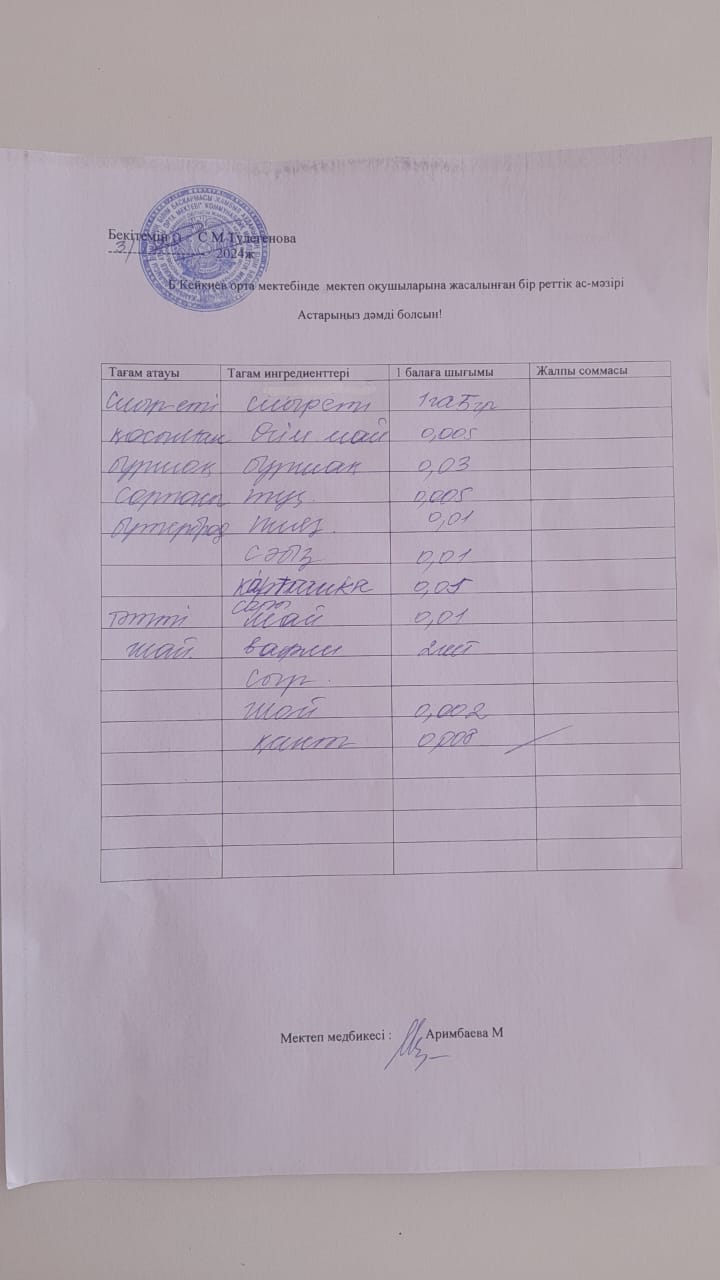 Бекітемін С М Тулегенова
2024ж
Б Кейкиев орта мектебінде мектеп оқушыларына жасалынған бір реттік ас-мәзірі
Астарыңыз дәмді болсын!
Тағам атауы Тағам ингредиенттері 1 балаға шығымы Жалпы соммасы
сиыр еті сиыр еті
қосылған өсім май 0,005
бұршақ бұршақ 0,03
сорпасы тұз 0,005
бутерброд пияз 0,01
сәбіз 0,01
картошка 0,05
тәтті сары май 0,01
шай вафли 2шт
сыр
шай 0,002
қант 0,008
Мектеп медбикесі : Аримбаева М